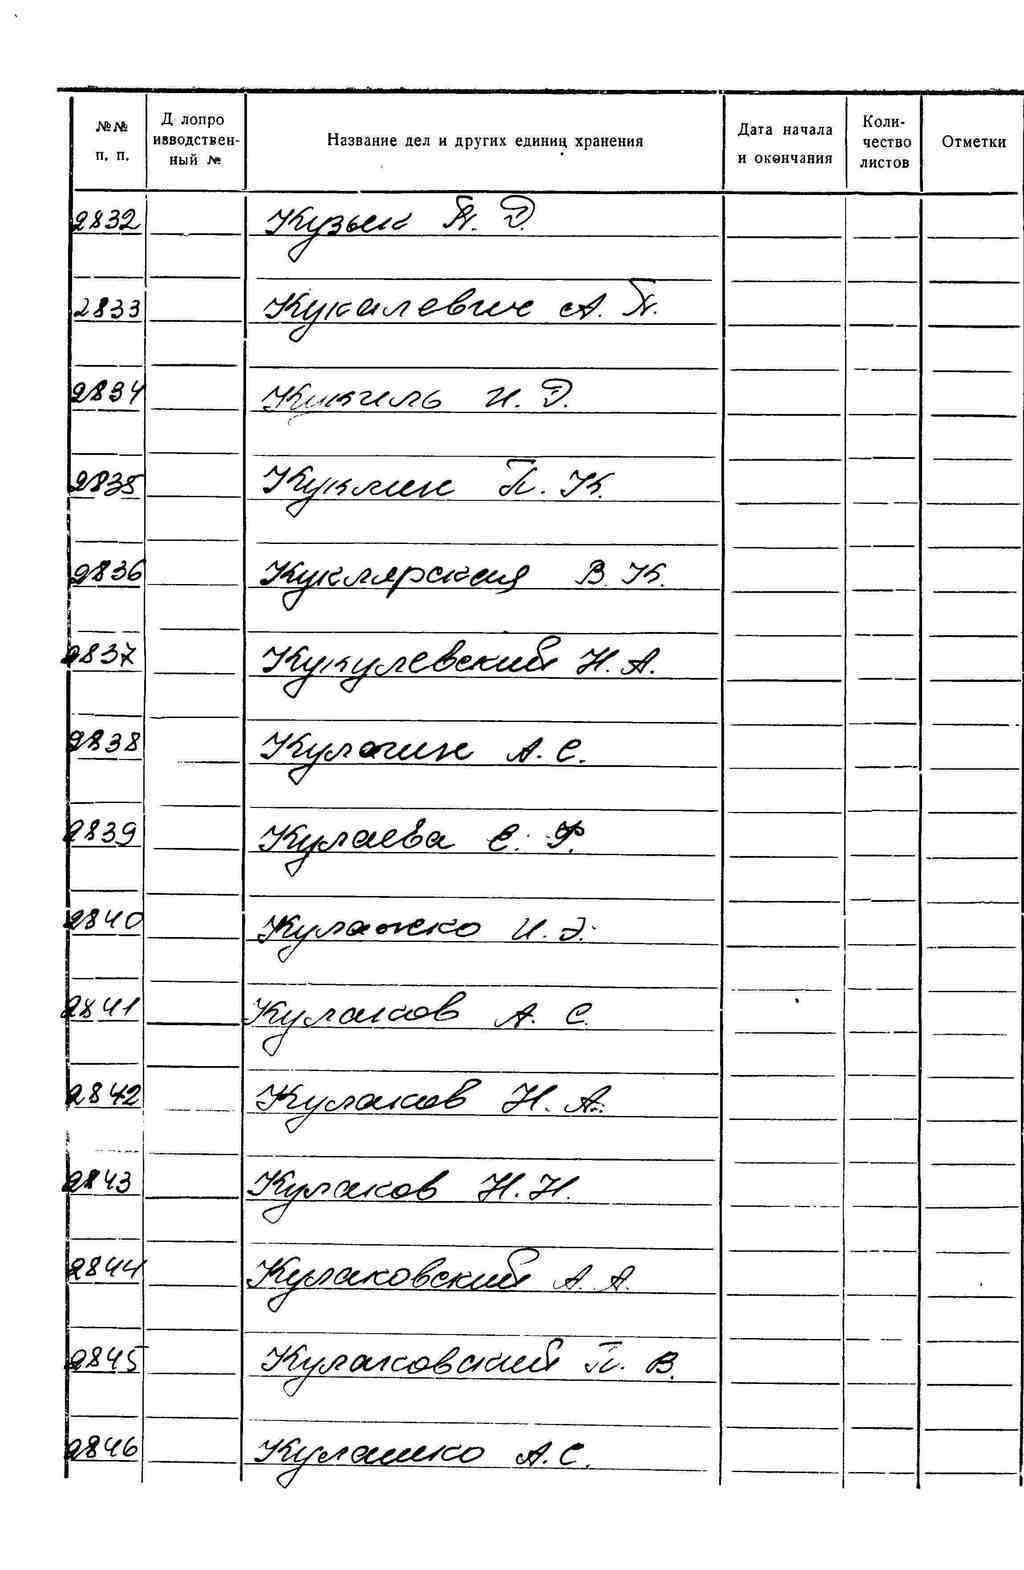 №№ п. п.
Д лопро изводствен- ный №
Название дел и других единиц хранения
Дата начала и окончания
Коли- чество листов
Отметки
2832 Кузьик П. Д.
2833 Кукалевич А. П.
2834 Кукиль И. Д.
2835 Куклин П. К.
2836 Куклярская В. К.
2837 Кукулевский Н. А.
2838 Кулагин А. С.
2839 Кулаева Е. Ф.
2840 Кулажко И. Э.
2841 Кулаков А. С.
2842 Кулаков Н. А.
2843 Кулаков Н. Н.
2844 Кулаковский А. А.
2845 Кулаковский П. В.
2846 Кулашко А. С.